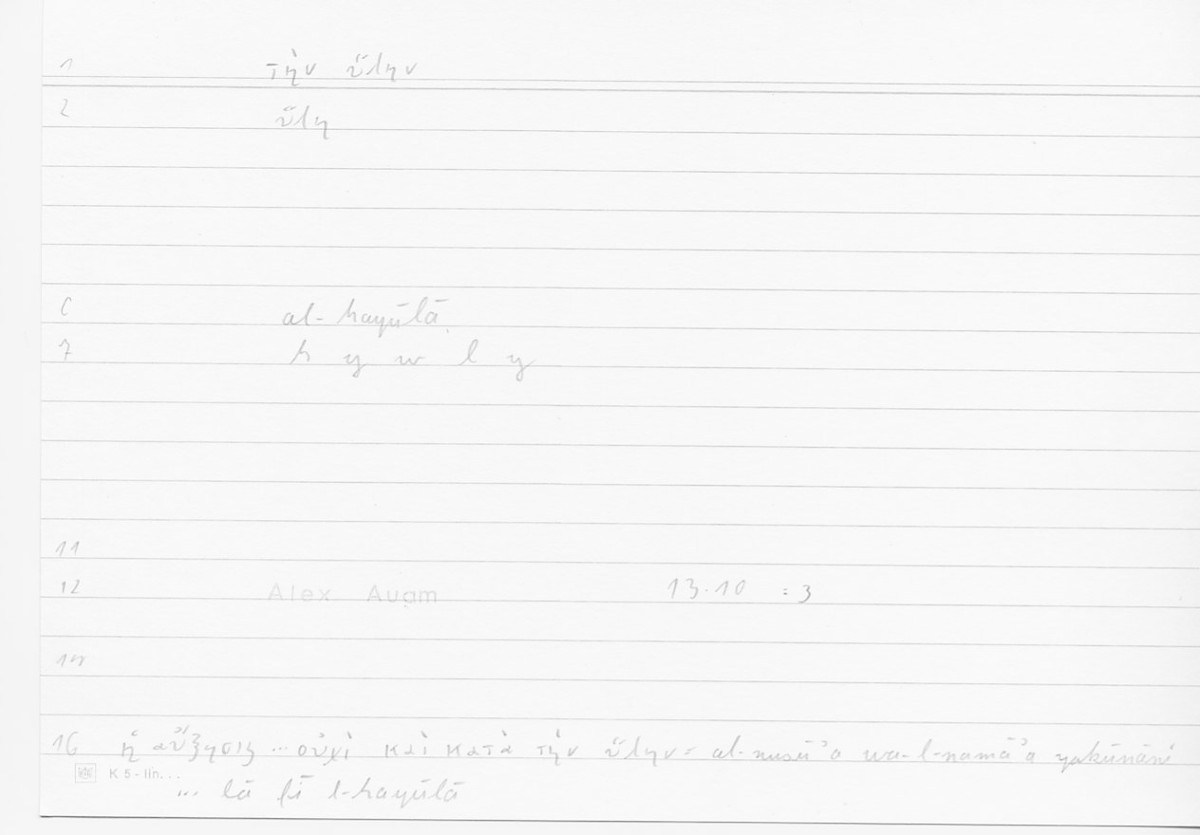 1 τὴν ὕλην
2 ὕλη
6 al-hayūlā
7 h y w l y
11
12 Alex Auqm 13.10 = 3
14
16 ἡ αὔξησις ... οὐχὶ καὶ κατὰ τὴν ὕλην = al-nušūʾa wa-l-namāʾa yakūnāni
K 5 - lin. . .
... lā fī l-hayūlā